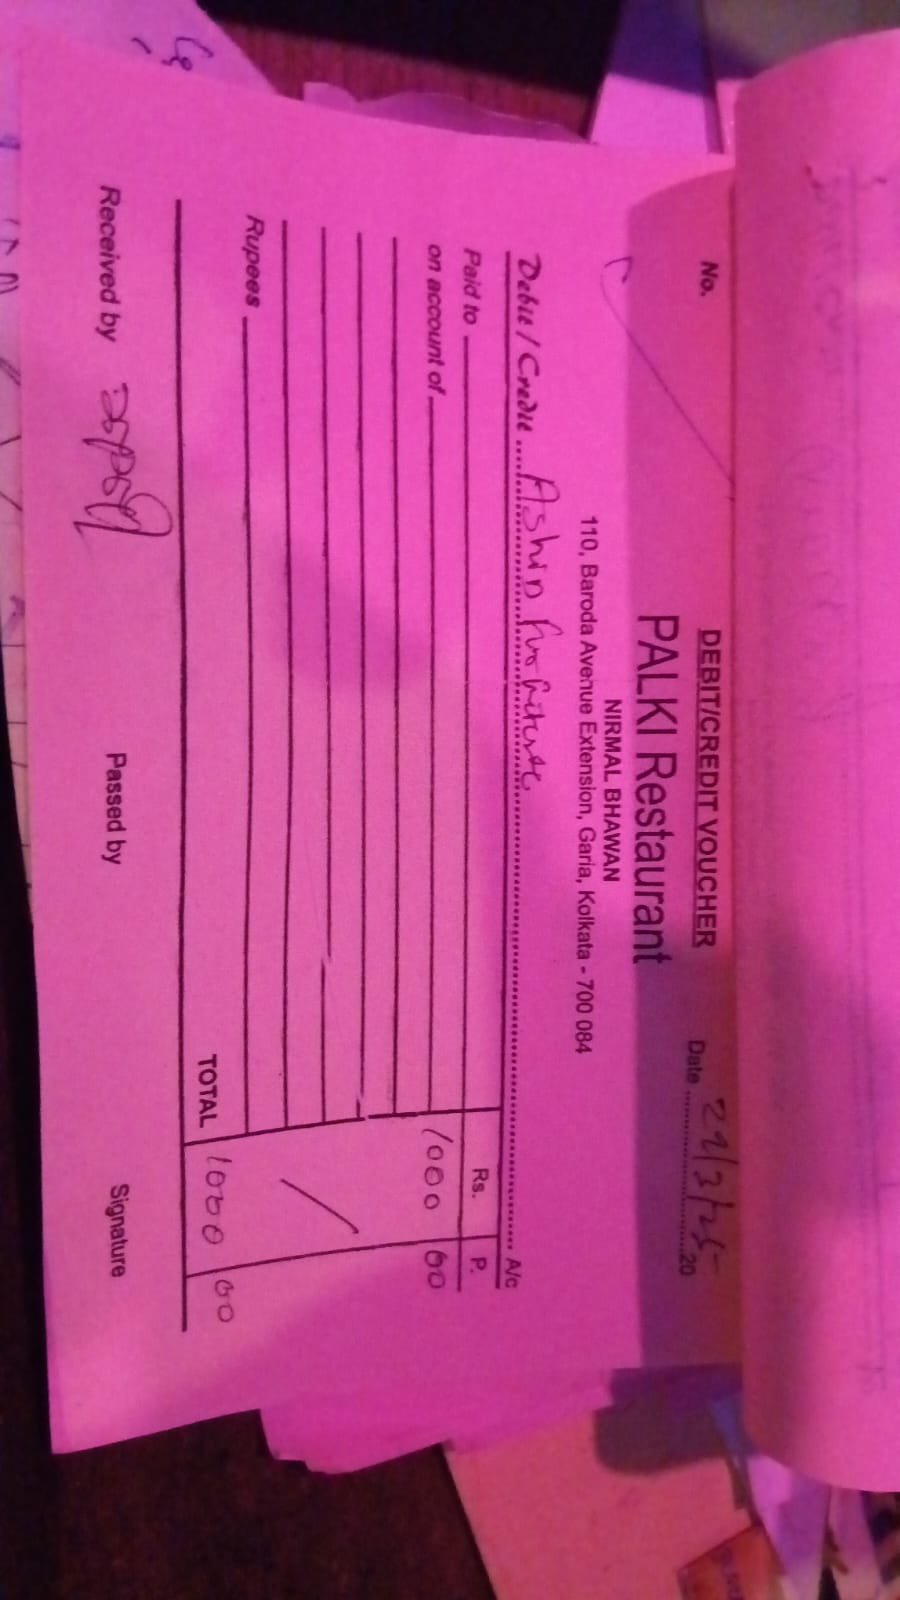 DEBIT/CREDIT VOUCHER
No.
Date 22/3/25 20
PALKI Restaurant
NIRMAL BHAWAN
110, Baroda Avenue Extension, Garia, Kolkata - 700 084
Debit / Credit Ashin A/c
Paid to Rs. P.
on account of 1000 00
Rupees
TOTAL 1000 00
Received by
Passed by
Signature